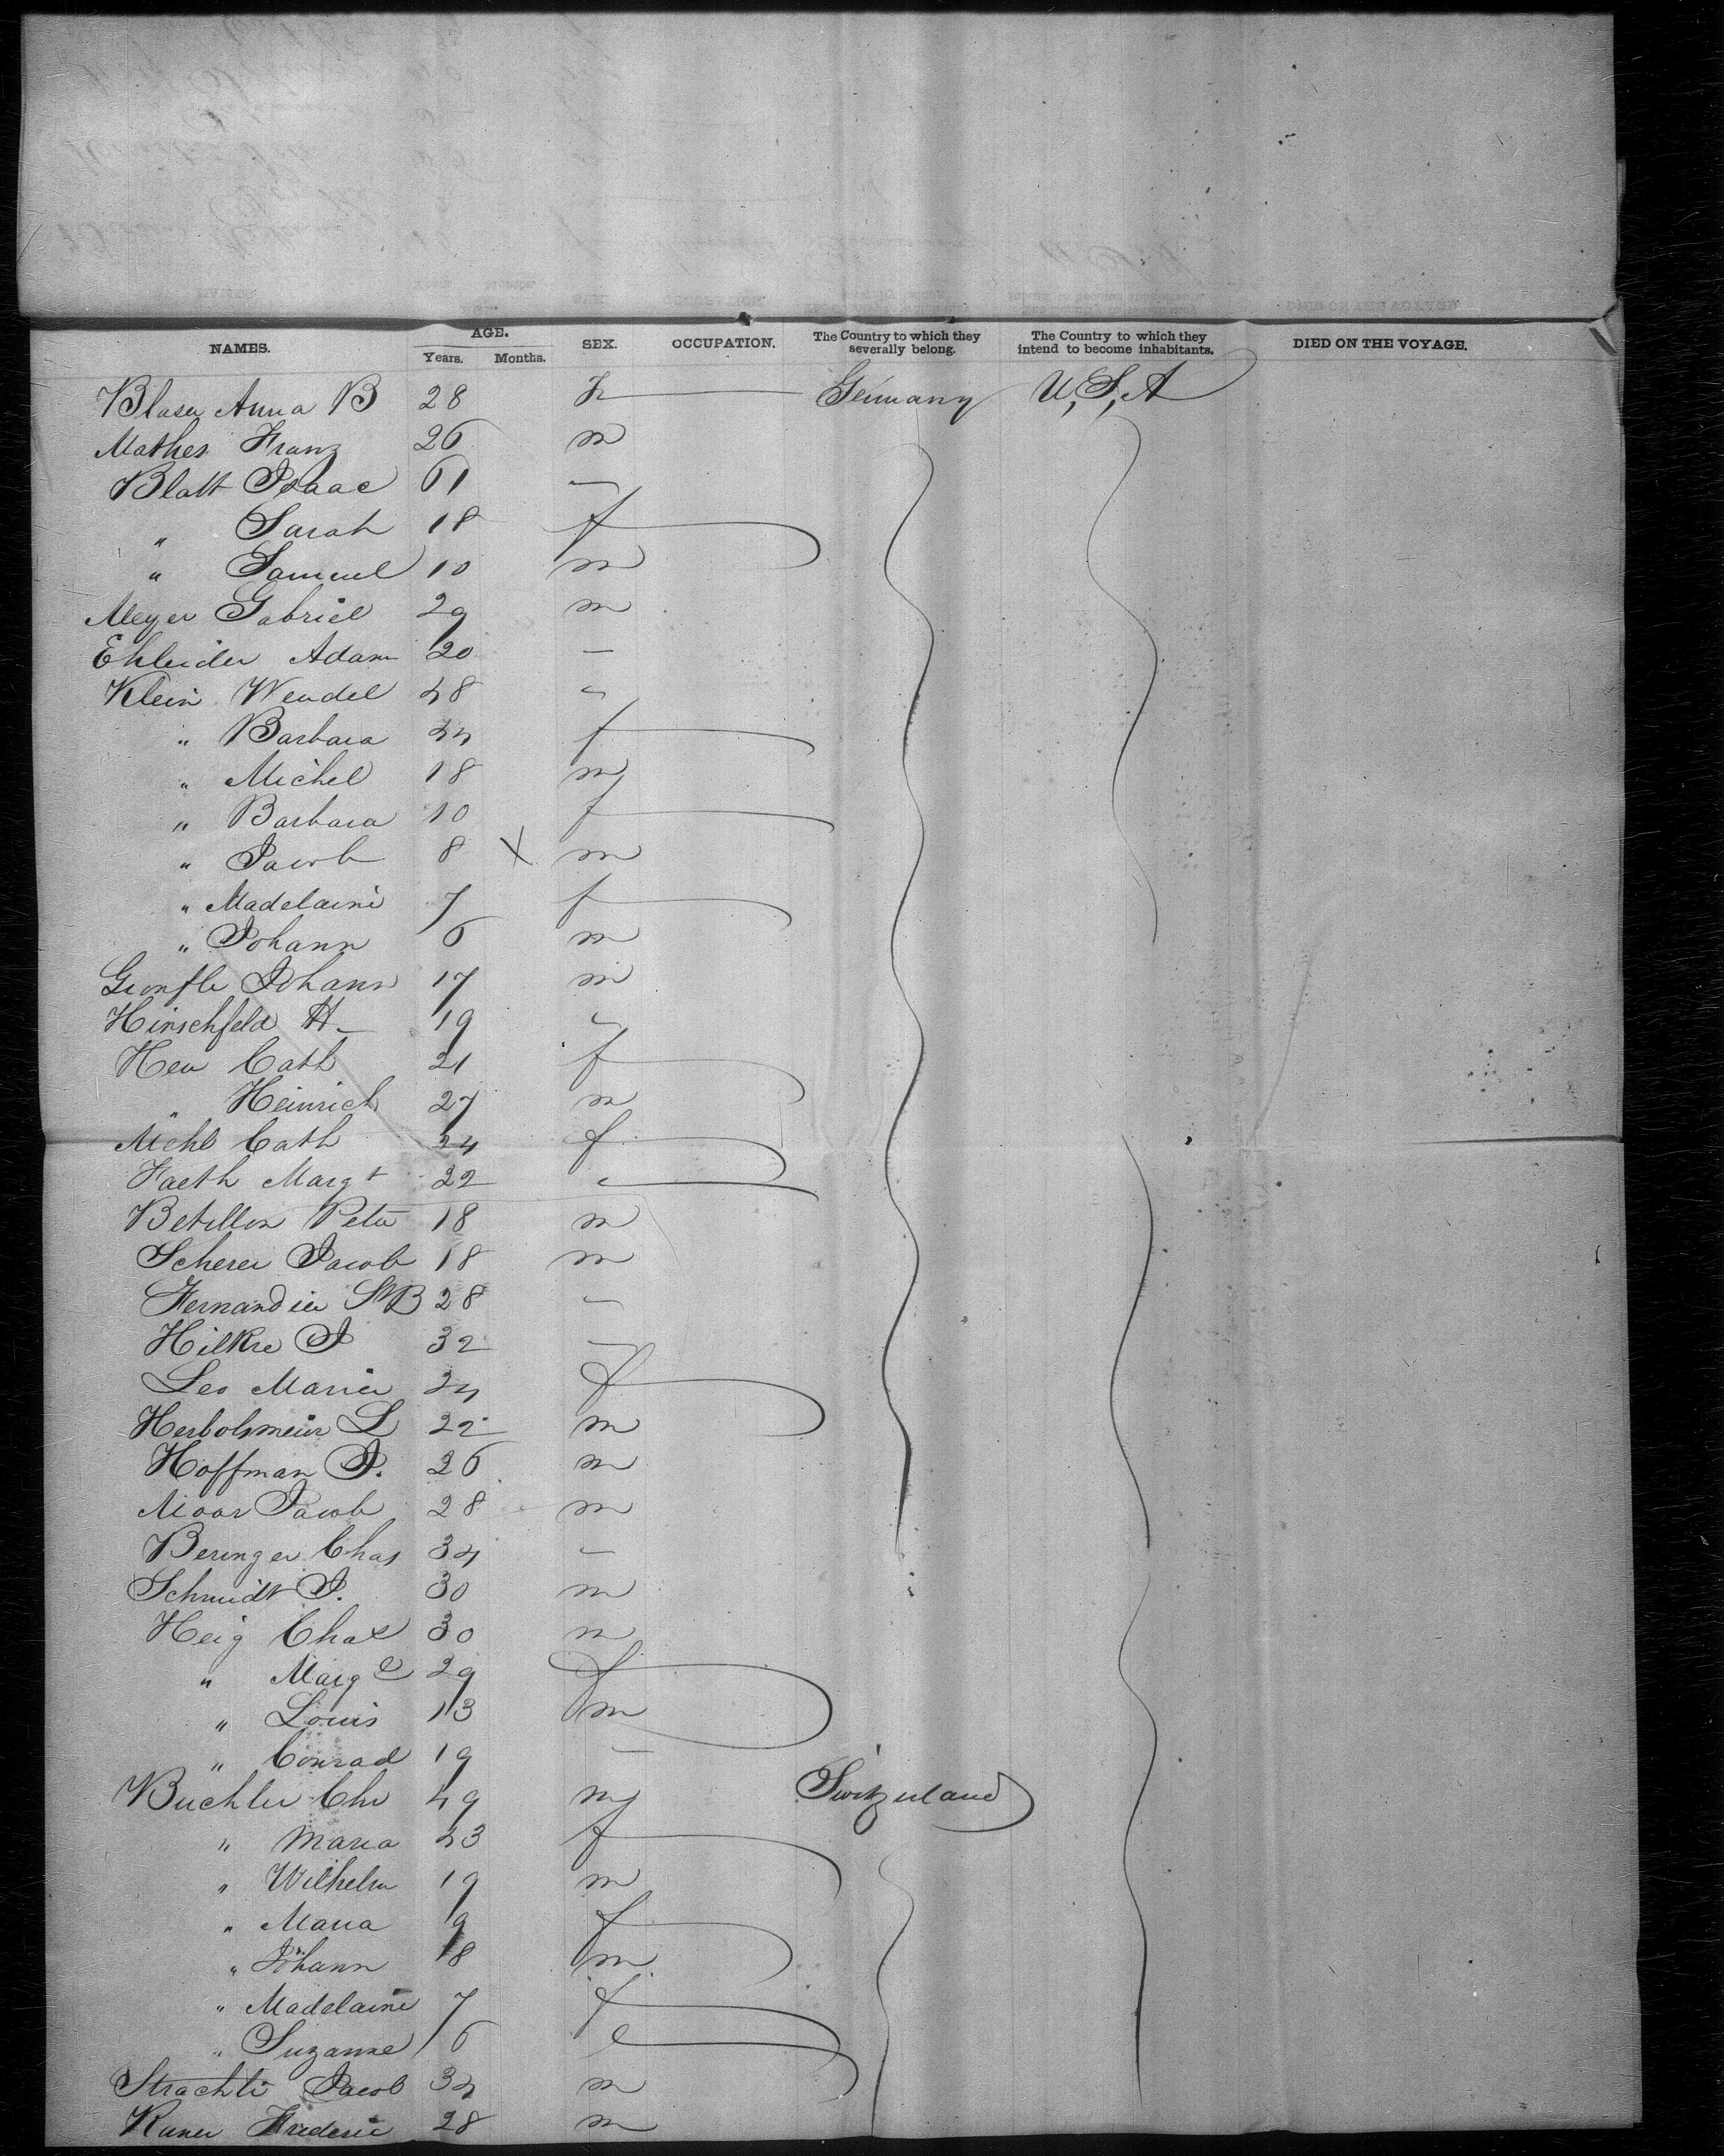 NAMES. AGE. Years. Months. SEX. OCCUPATION. The Country to which they severally belong. The Country to which they intend to become inhabitants. DIED ON THE VOYAGE.
Blaser Anna B 28 F Germany U,S,A
Mathes Franz 26 m
Blatt Isaac 61 -
" Sarah 18 f
" Samuel 10 m
Meyer Gabriel 29 m
Adam 20 -
Klein Wendel 48 "
" Barbara 44 f
" Michel 18 m
" Barbara 10 f
" Jacob 8 X m
" Madelaine 7 f
" Johann 6 m
Johann 17 m
Hirschfeld H 19 "
Cath 21 f
" Heinrich 27 m
Cath 24 f
Faeth Margt 22 "
Betillon Peter 18 m
Scherer Jacob 18 m
28 -
Hilkre J 32 -
Leo Maria 24 f
L 22 m
Hoffman J. 26 m
Moor Jacob 28 m
Beringer Chas 34 -
Schmidt J. 30 m
Heig Chas 30 m
" Marge 29 f
" Louis 13 m
" Conrad 19 -
Buchler Chr 49 m Switzerland
" Maria 43 f
" Wilhelm 19 m
" Maria 9 f
" Johann 8 m
" Madelaine 7 f
" Suzanne 6 "
Strachti Jacob 34 m
Frederic 28 m